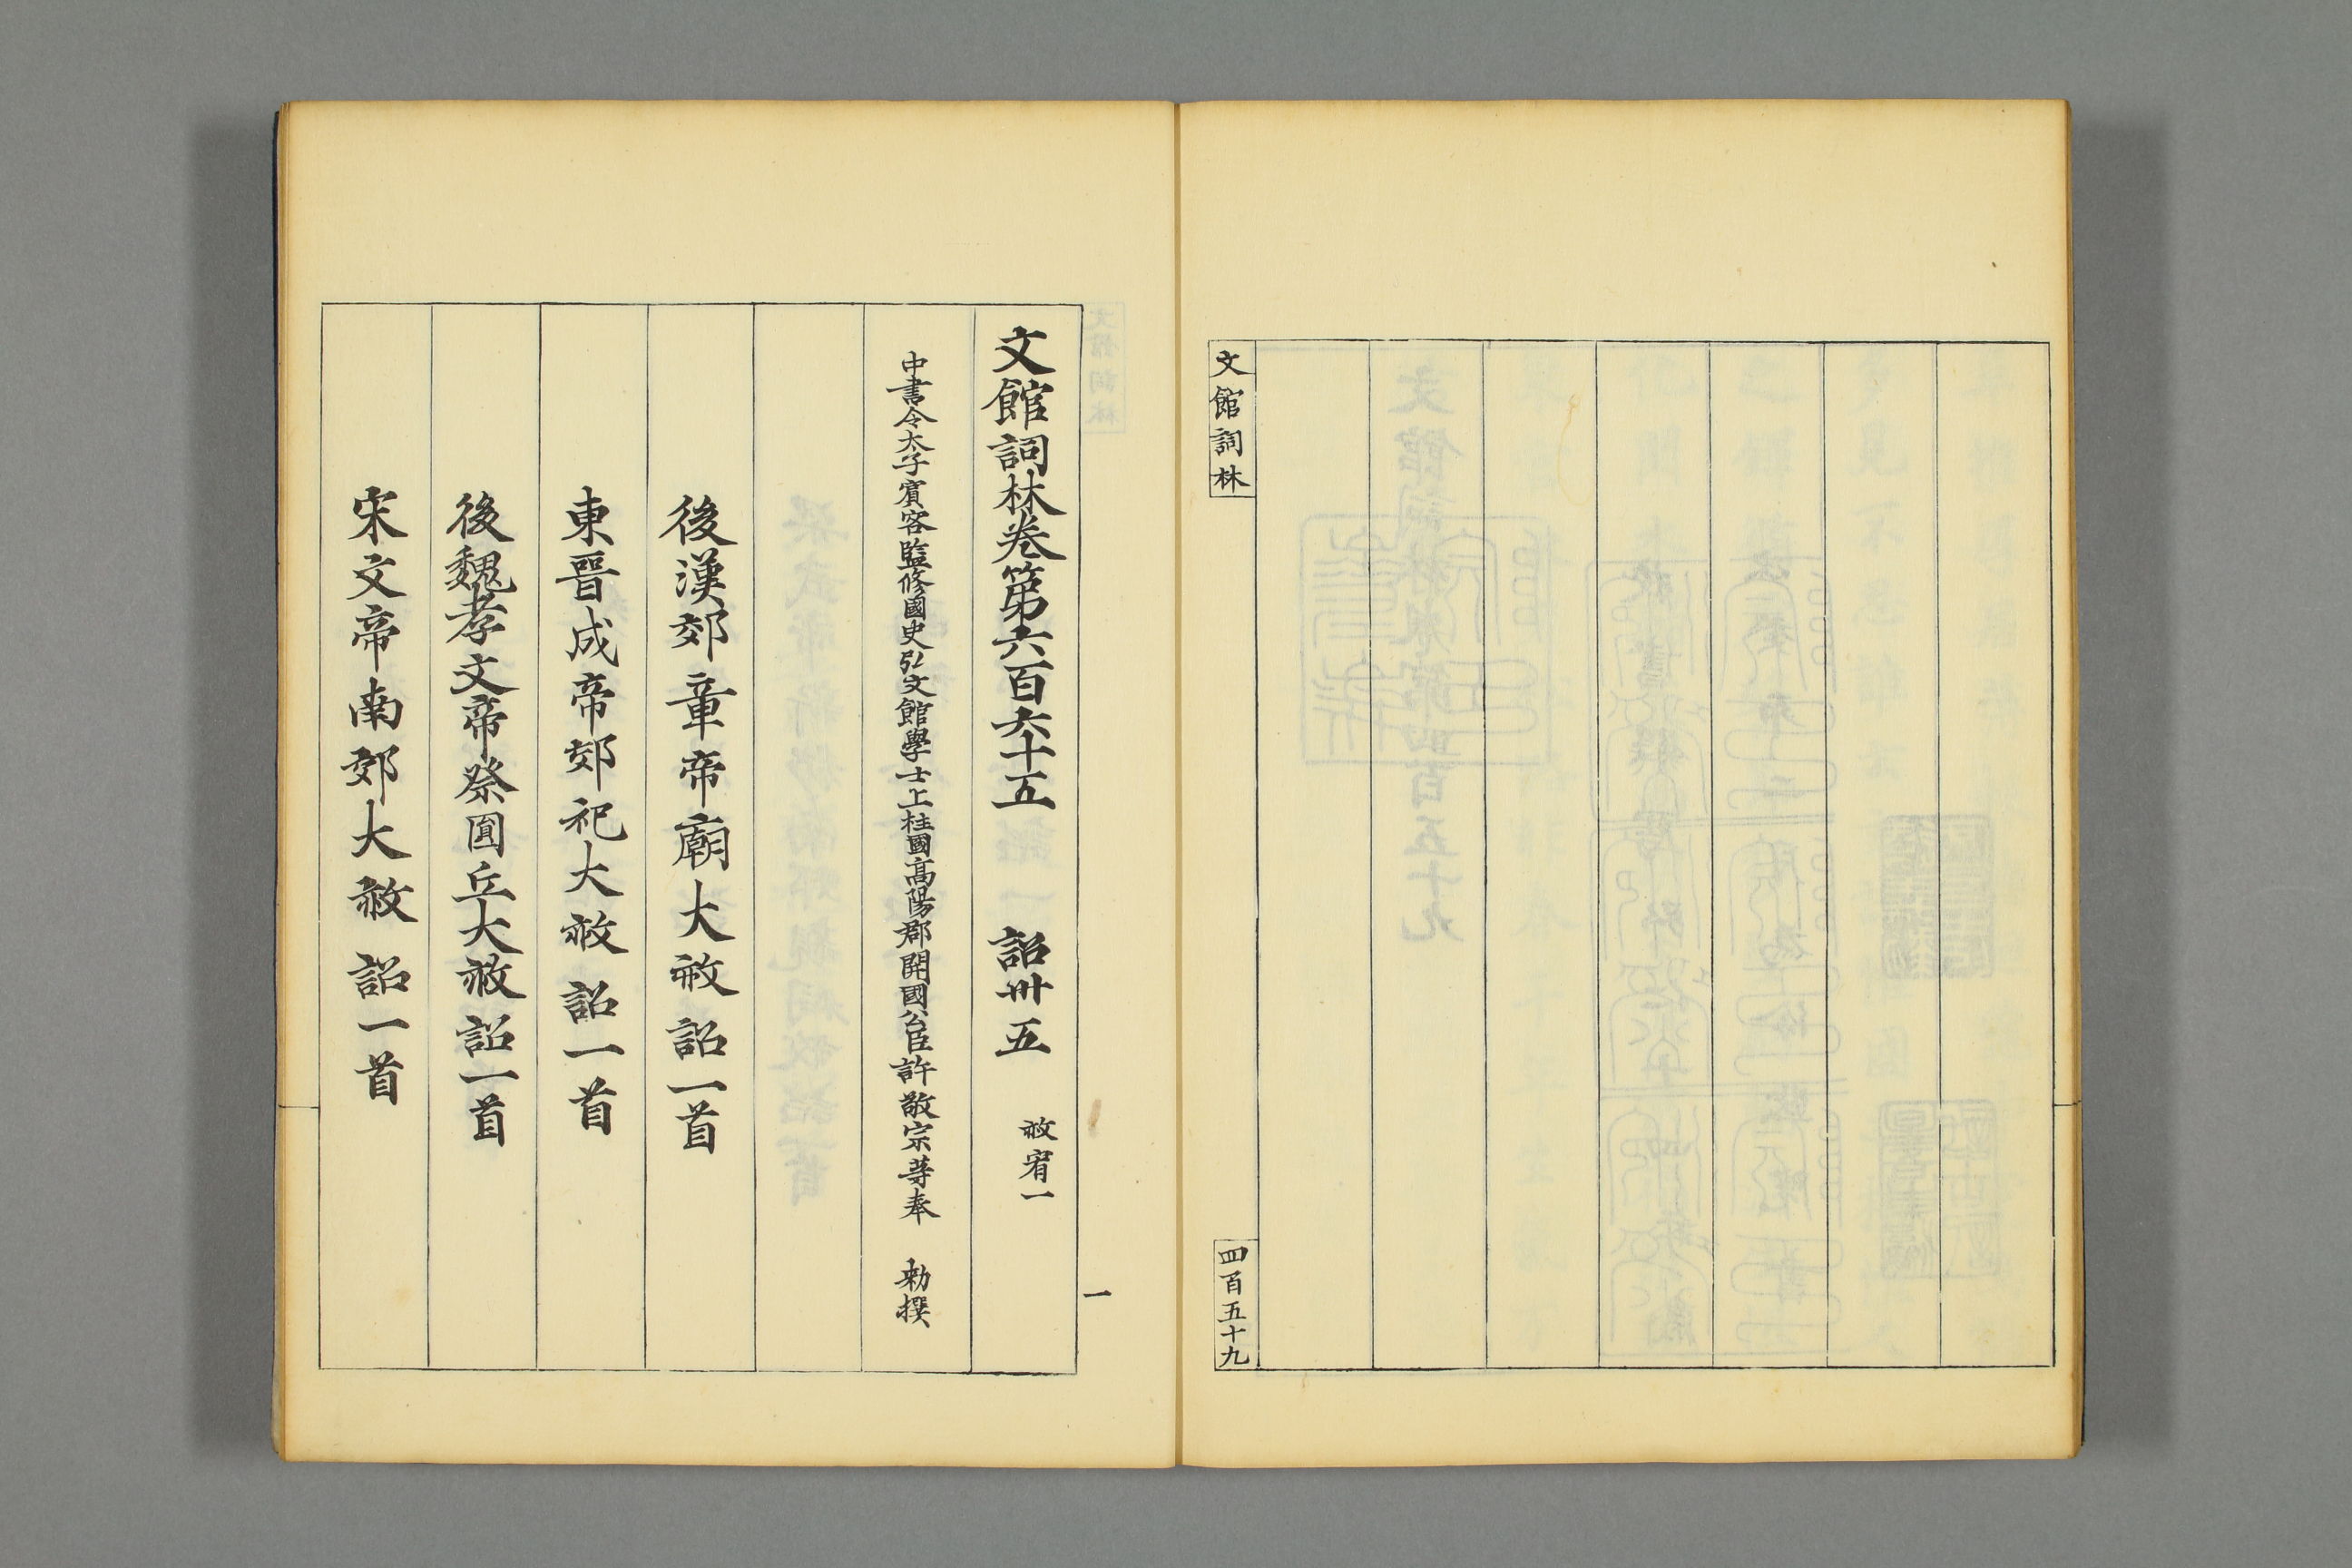 文館詞林
四百五十九
文館詞林卷第六百六十五　詔卅五　赦宥一
中書令太子賓客監修國史弘文館學士上柱國高陽郡開國公臣許敬宗等奉　勅撰
後漢郊章帝廟大赦詔一首
東晉成帝郊祀大赦詔一首
後魏孝文帝祭圓丘大赦詔一首
宋文帝南郊大赦詔一首
一